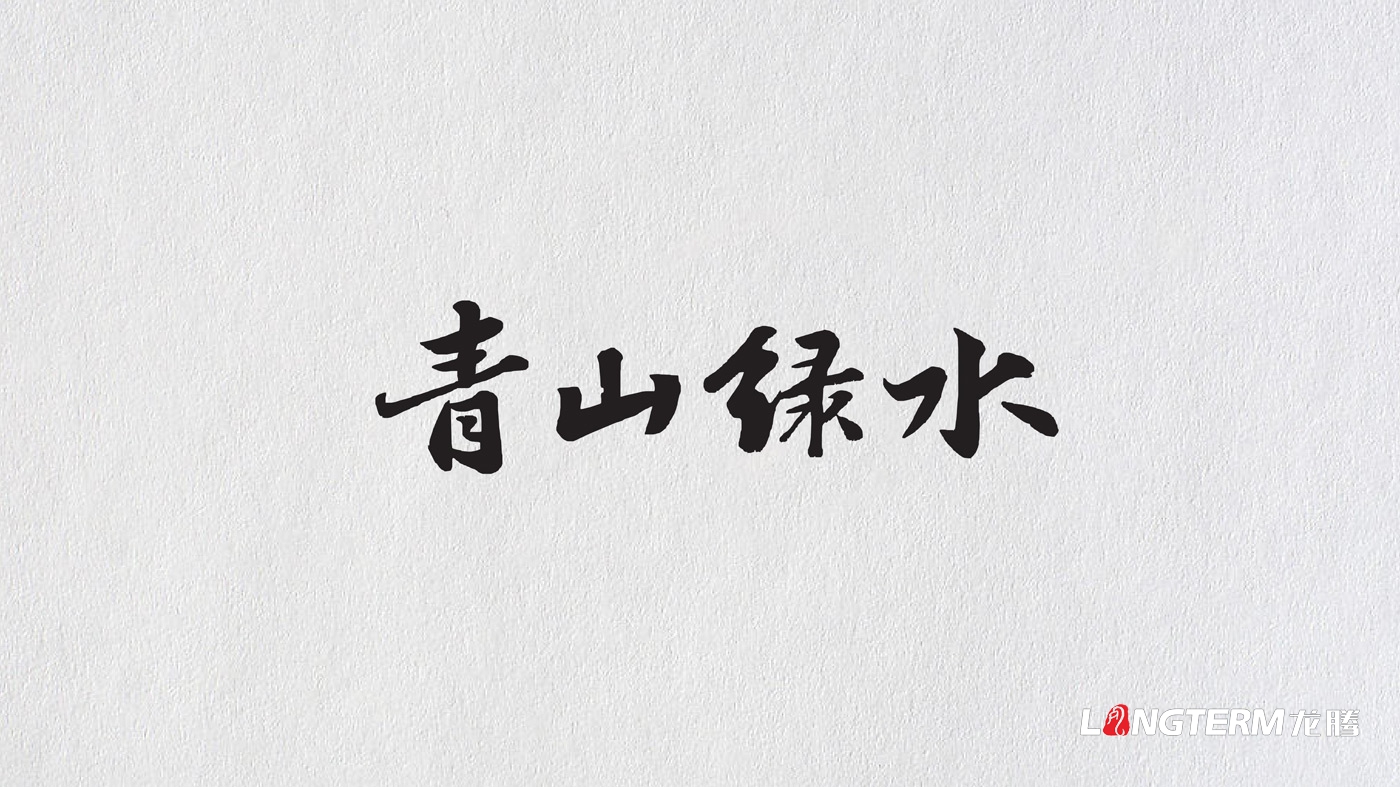 青山绿水
LONGTERM龙腾